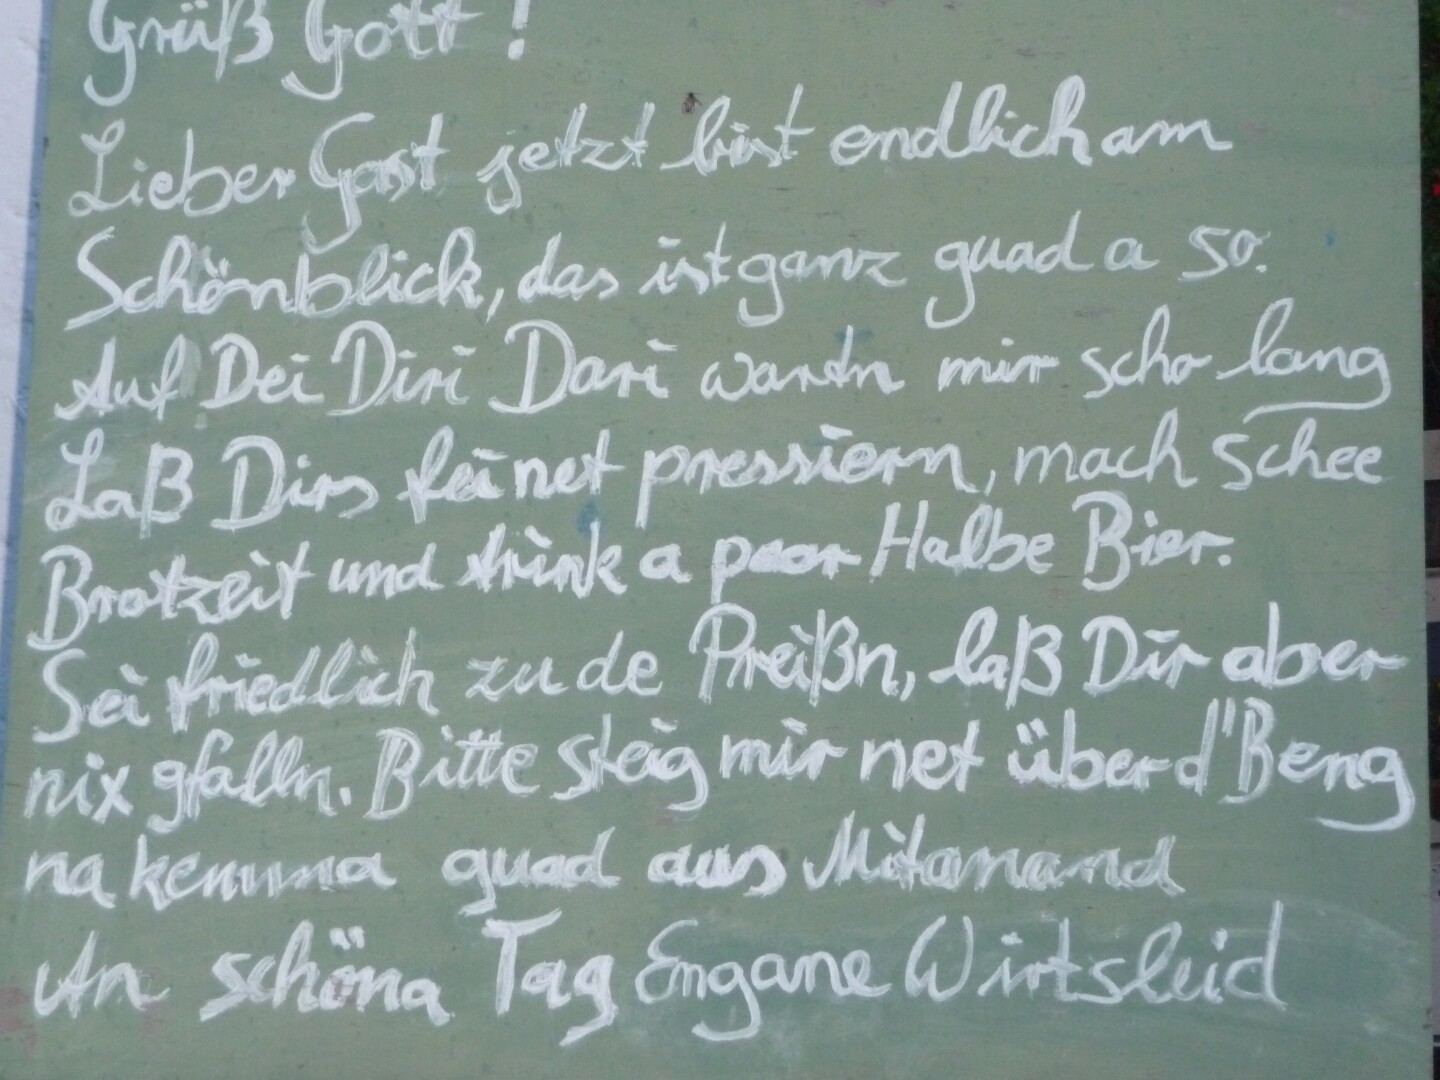 Grüß Gott!
Lieber Gast jetzt bist endlich am
Schönblick, das ist ganz guad a so.
Auf Dei Diri Dari wartn mir scho lang
Laß Dirs fei net pressiern, mach schee
Brotzeit und trink a paar Halbe Bier.
Sei friedlich zu de Preißn, laß Dir aber
nix gfalln. Bitte steig mir net über d'Beng
na kemma guad aus Mitanand
An schöna Tag Engane Wirtsleid